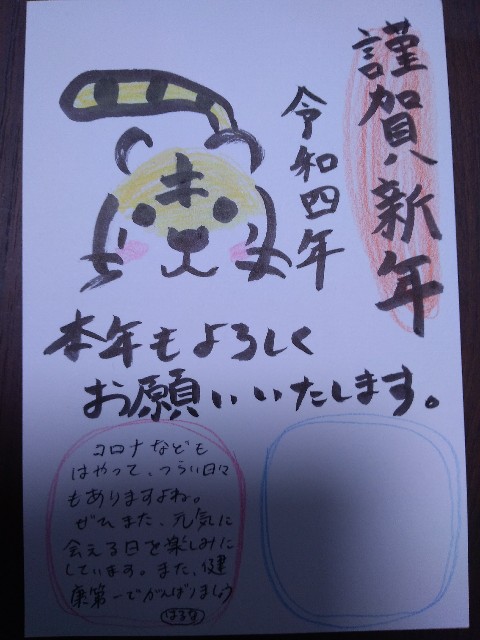 謹賀新年
令和四年
本年もよろしく
お願いいたします。
コロナなども
はやって、つらい日々
もありますよね。
ぜひまた、元気に
会える日を楽しみに
しています。また、健
康第一でがんばりましょう
はるな